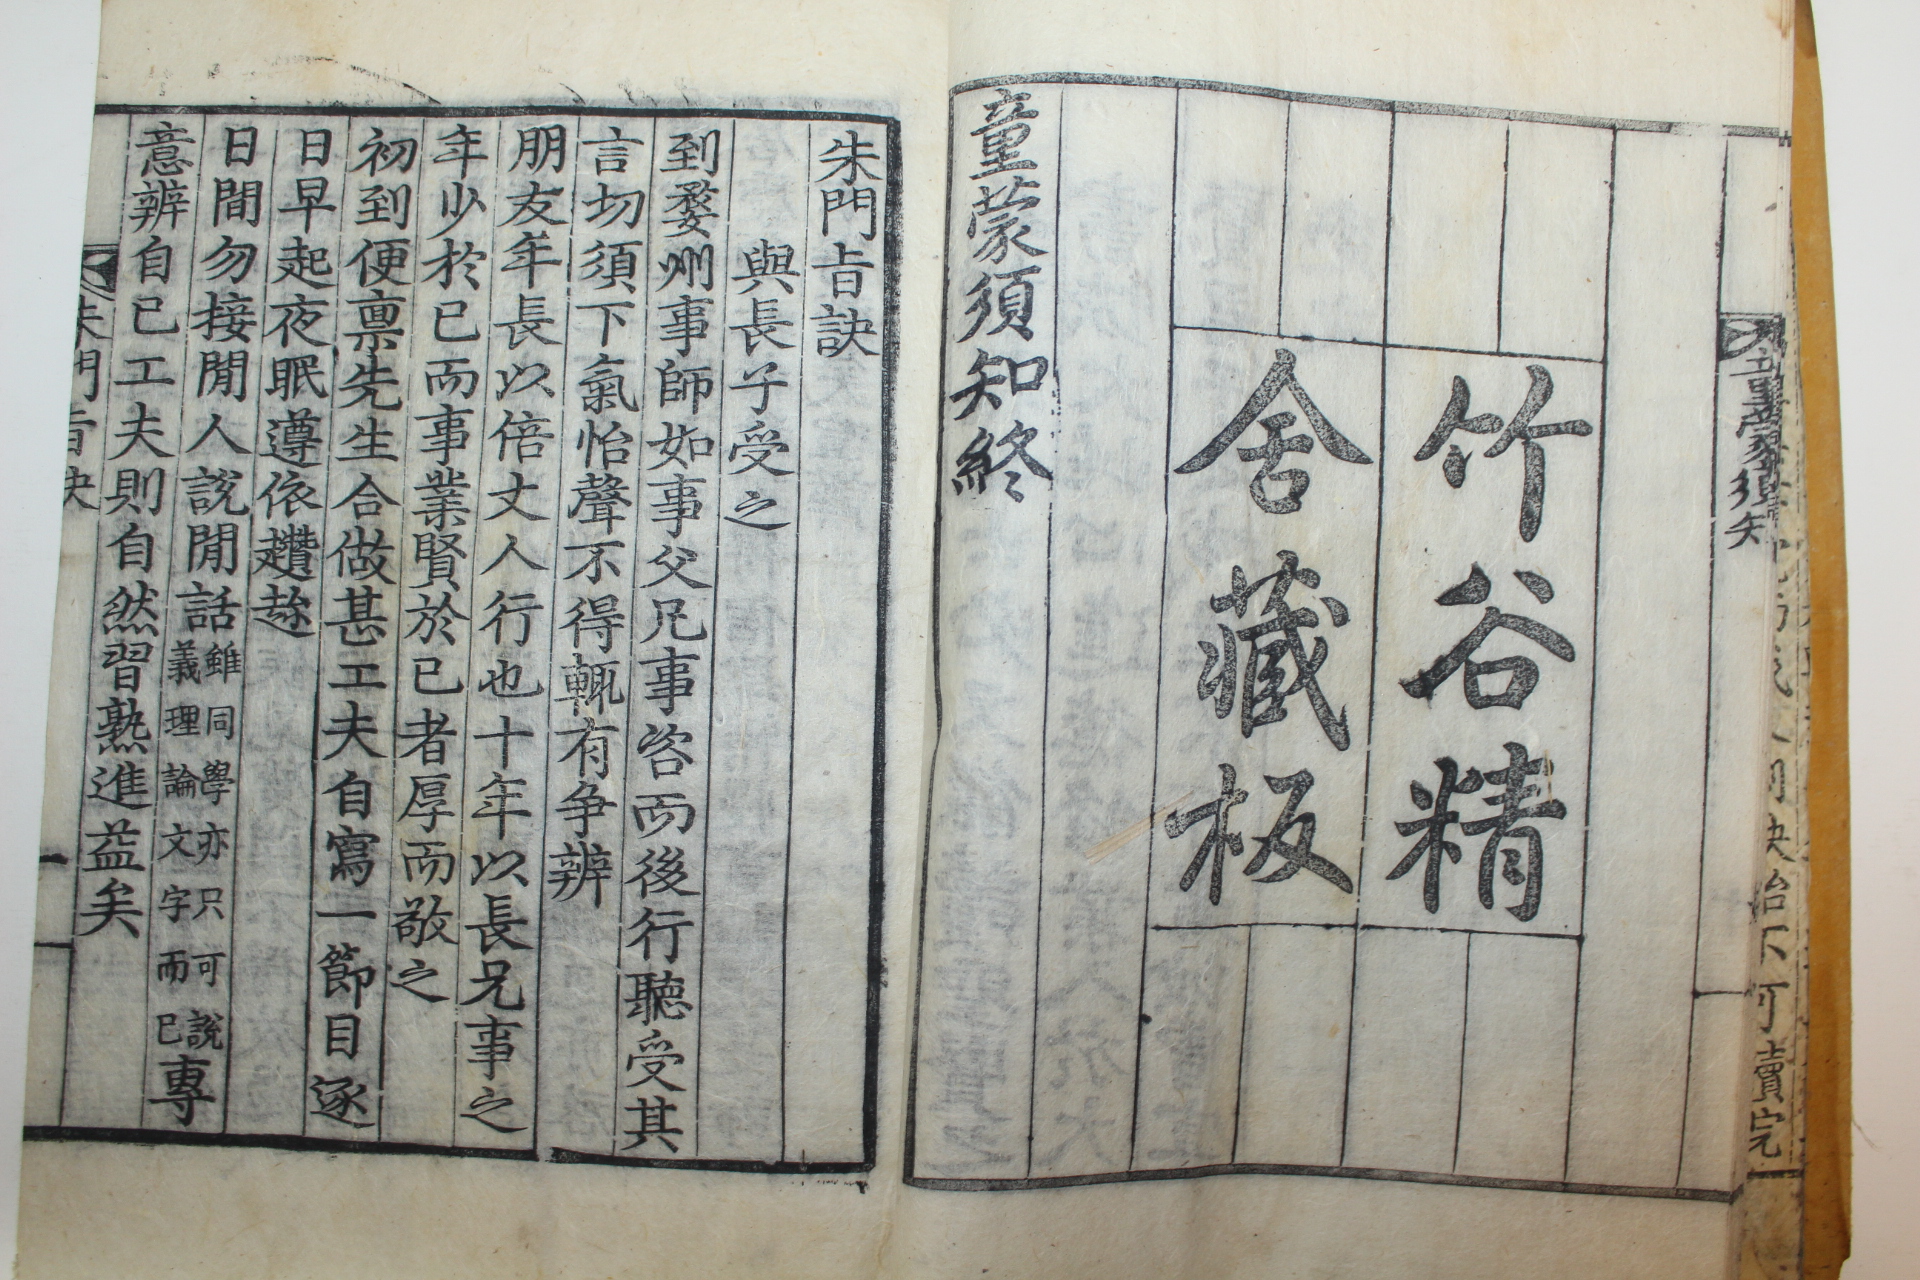 不可讀完
童蒙須知
竹谷精
舍藏板
童蒙須知終
朱門旨訣
與長子受之
到婺州事師如事父兄事咨而後行聽受其
言切須下氣怡聲不得輒有争辨
朋友年長以倍丈人行也十年以長兄事之
年少於已而事業賢於已者厚而敬之
初到便禀先生合做甚工夫自寫一節目逐
日早起夜眠遵依趲趂
日間勿接閒人說閒話雖同學亦只可說義理論文字而已專
意辨自已工夫則自然習熟進益矣
朱門旨訣